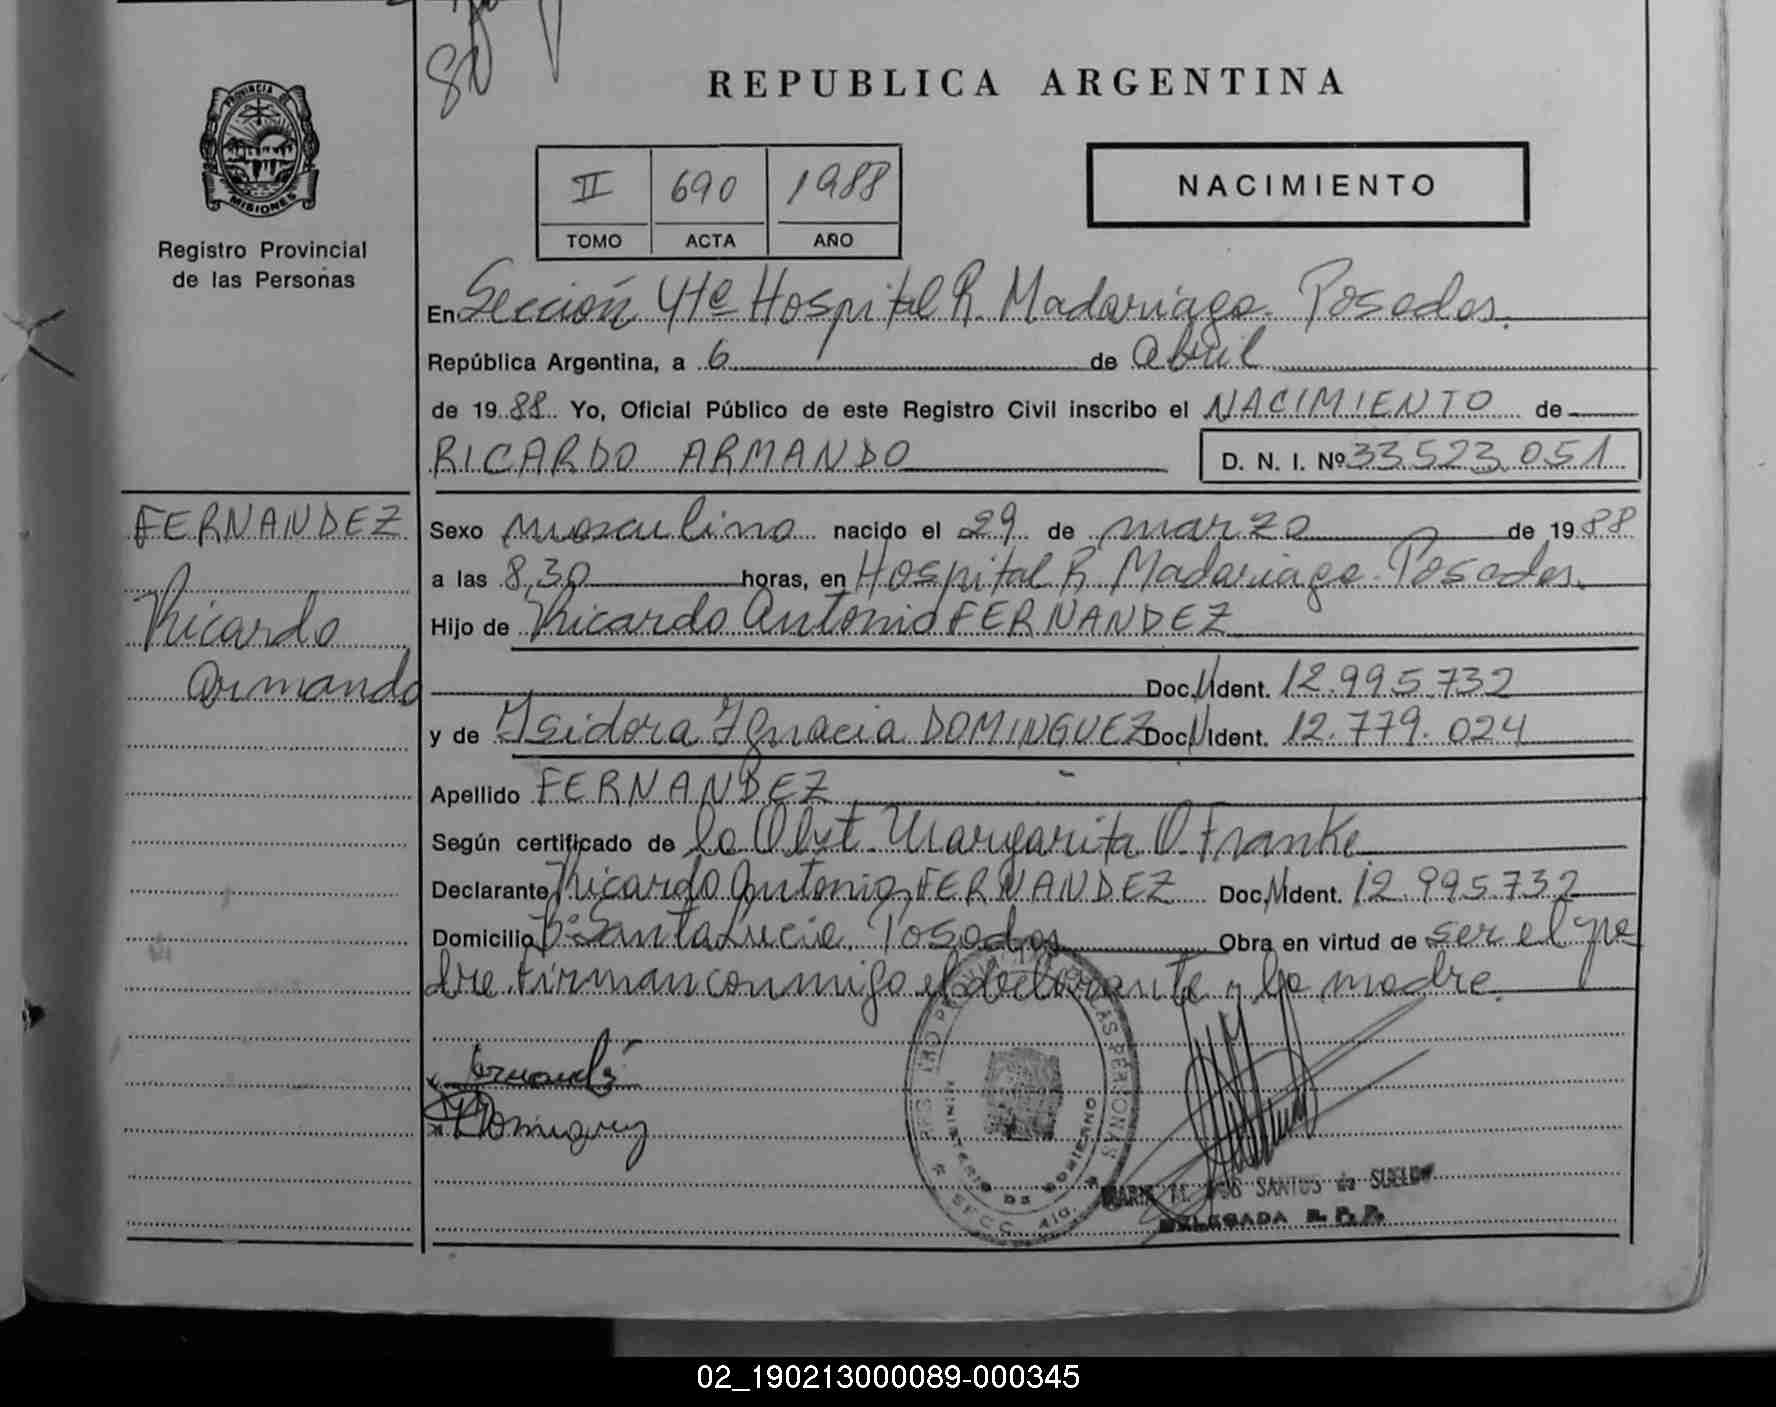 REPUBLICA ARGENTINA
PROVINCIA DE
MISIONES
Registro Provincial
de las Personas
II 690 1988
TOMO ACTA AÑO
NACIMIENTO
En Sección 4ta Hospital R. Madariaga. Posadas.
República Argentina, a 6 de Abril
de 1988 Yo, Oficial Público de este Registro Civil inscribo el NACIMIENTO de
RICARDO ARMANDO D. N. I. Nº 33.523.051
FERNANDEZ
Ricardo
Armando
Sexo masculino nacido el 29 de marzo de 1988
a las 8,30 horas, en Hospital R. Madariaga. Posadas.
Hijo de Ricardo Antonio FERNANDEZ
Doc. N Ident. 12.995.732
y de Isidora Ignacia DOMINGUEZ Doc. N Ident. 12.779.024
Apellido FERNANDEZ
Según certificado de la Obst. Margarita O. Franke
Declarante Ricardo Antonio FERNANDEZ Doc. N Ident. 12.995.732
Domicilio Bº Santa Lucia Posadas Obra en virtud de ser el pa
dre. Firman conmigo el declarante y la madre.
Dominguez
LAS PERSONAS
MINISTERIO DE GOBIERNO
DOS SANTOS de SUELDO
DELEGADA R. P. P.
02_190213000089-000345